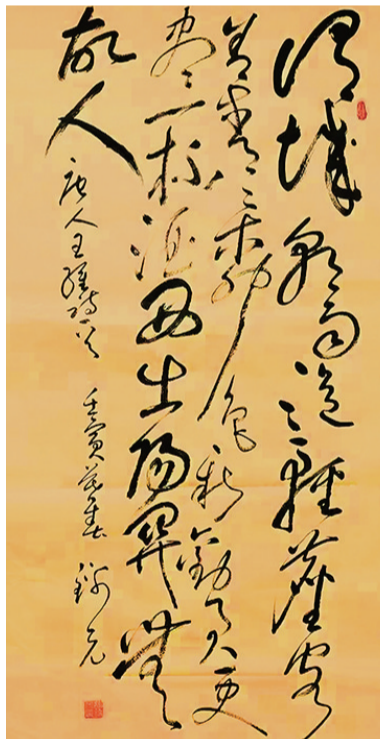 渭城朝雨浥輕塵客
舍青青柳色新勸君更
盡一杯酒西出陽關無
故人 唐人王維詩一首 壬寅春